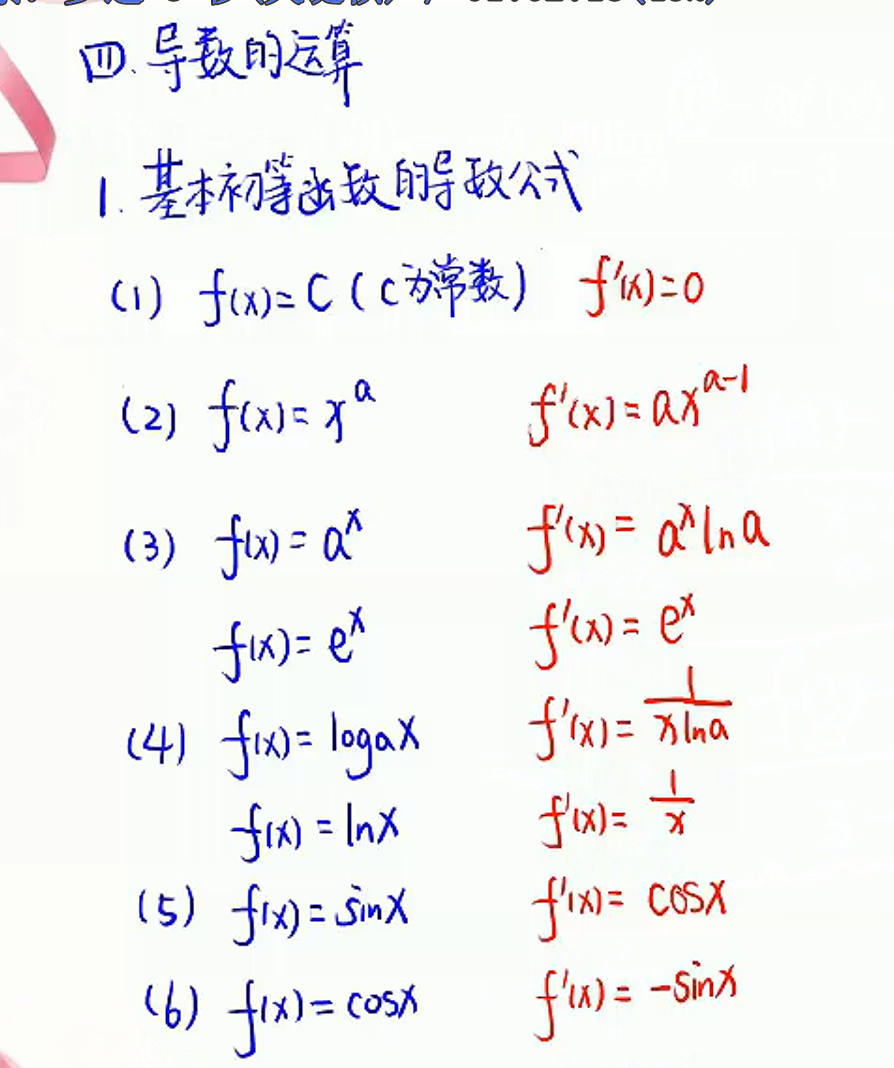 四.导数的运算
1.基本初等函数的导数公式
(1) f(x)=C (C为常数) f'(x)=0
(2) f(x)=xᵃ f'(x)=axᵃ⁻¹
(3) f(x)=aˣ f'(x)=aˣlna
f(x)=eˣ f'(x)=eˣ
(4) f(x)=logax f'(x)=1/xlna
f(x)=lnx f'(x)=1/x
(5) f(x)=sinx f'(x)=cosx
(6) f(x)=cosx f'(x)=-sinx